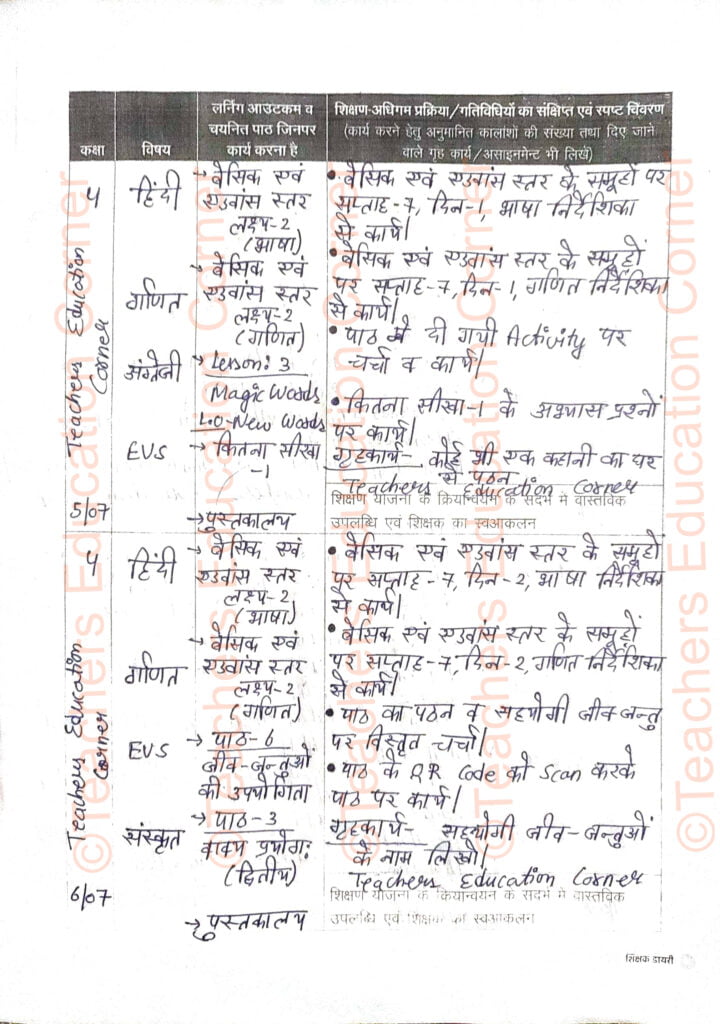 कक्षा
विषय
लर्निंग आउटकम व
चयनित पाठ जिनपर
कार्य करना है
शिक्षण-अधिगम प्रक्रिया/गतिविधियों का संक्षिप्त एवं स्पष्ट विवरण
(कार्य करने हेतु अनुमानित कालांशों की संख्या तथा दिए जाने
वाले गृह कार्य/असाइनमेन्ट भी लिखें)
4
हिंदी
→ बेसिक एवं
एडवांस स्तर
लक्ष्य-2
(भाषा)
• बेसिक एवं एडवांस स्तर के समूहों पर
सप्ताह-7, दिन-1, भाषा निर्देशिका
से कार्य।
गणित
→ बेसिक एवं
एडवांस स्तर
लक्ष्य-2
(गणित)
• बेसिक एवं एडवांस स्तर के समूहों
पर सप्ताह-7, दिन-1, गणित निर्देशिका
से कार्य।
अंग्रेजी
→ Lesson: 3
Magic Words
LO-New Words
• पाठ में दी गयी Activity पर
चर्चा व कार्य।
EVS
→ कितना सीखा
-1
• कितना सीखा-1 के अभ्यास प्रश्नों
पर कार्य।
गृहकार्य- कोई भी एक कहानी का घर
से पठन
Teachers Education Corner
5/07
→ पुस्तकालय
शिक्षण योजना के क्रियान्वयन के संदर्भ में वास्तविक
उपलब्धि एवं शिक्षक का स्वआकलन
Teachers Education
Corner
4
हिंदी
→ बेसिक एवं
एडवांस स्तर
लक्ष्य-2
(भाषा)
• बेसिक एवं एडवांस स्तर के समूहों
पर सप्ताह-7, दिन-2, भाषा निर्देशिका
से कार्य।
गणित
→ बेसिक एवं
एडवांस स्तर
लक्ष्य-2
(गणित)
• बेसिक एवं एडवांस स्तर के समूहों
पर सप्ताह-7, दिन-2, गणित निर्देशिका
से कार्य।
EVS
→ पाठ-6
जीव-जन्तुओं
की उपयोगिता
• पाठ का पठन व सहयोगी जीव जन्तु
पर विस्तृत चर्चा।
संस्कृत
→ पाठ-3
वाक्य प्रयोगः
(द्वितीय)
• पाठ के QR Code को Scan करके
पाठ पर कार्य।
गृहकार्य- सहयोगी जीव-जन्तुओं
के नाम लिखो।
Teachers Education Corner
6/07
→ पुस्तकालय
शिक्षण योजना के कियान्वयन के संदर्भ में वास्तविक
उपलब्धि एवं शिक्षक का स्वआकलन
Teachers Education
Corner
शिक्षक डायरी
©Teachers Education Corner
©Teachers Education Corner
©Teachers Education Corner
©Teachers Education Corner